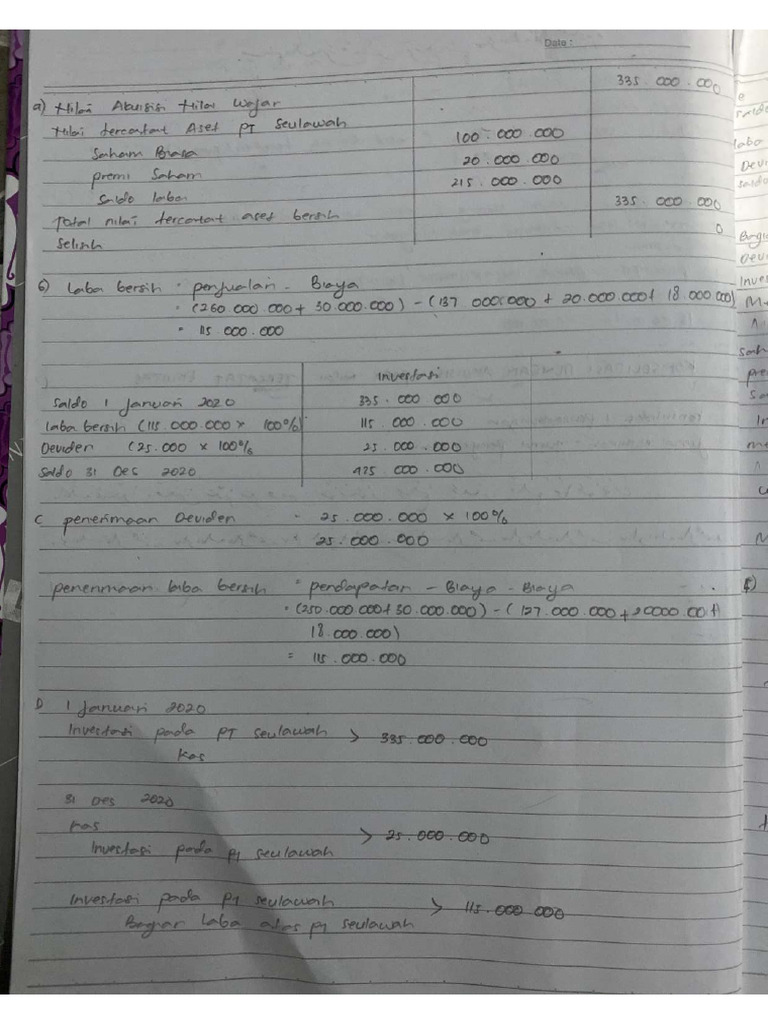 Date :
335 000.000
a) Nilai Akuisisi Nilai Wajar
Nilai tercatat Aset PT Seulawah
Saham Biasa 100.000.000
premi Saham 20.000.000
Saldo laba 215.000.000
Total nilai tercatat aset bersih 335 000.000
Selisih 0
b) Laba bersih = penjualan - Biaya
= (260 000 000 + 30.000.000) - (137 000.000 + 20.000.000 + 18.000.000)
= 115 000.000
Investasi
Saldo 1 Januari 2020 335.000 000
laba bersih (115 000.000 x 100%) 115.000.000
Deviden (25.000 x 100% 25.000.000
Saldo 31 Des 2020 425 000.000
C penerimaan Deviden = 25.000.000 x 100%
= 25.000.000
penerimaan laba bersih = pendapatan - Biaya - Biaya
= (250.000 000 + 30.000.000) - (127.000.000 + 20000.00 +
18.000.000)
= 115.000.000
D 1 Januari 2020
Investasi pada PT Seulawah > 335.000.000
Kas
31 Des 2020
Kas > 25.000.000
Investasi pada PT Seulawah
Investasi pada PT Seulawah > 115.000 000
Bagian Laba atas PT Seulawah